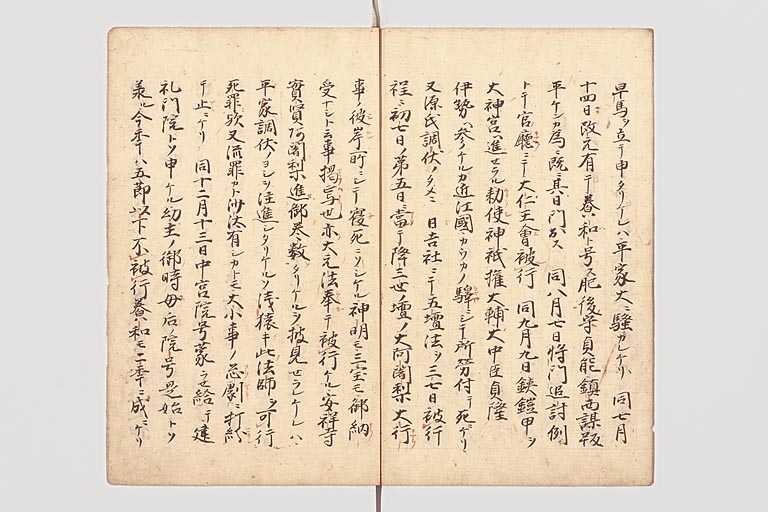 早馬ヲ立テ申タリケレハ平家大ニ騒カレケリ 同七月
十四日改元有テ養和ト号ス肥後守貞能鎮西謀叛
平ケンカ為ニ既ニ其日門出ス 同八月七日将門追討例
トテ官廳ニテ大仁王會被行 同九月九日鉄鎧甲ヲ
大神宮進セラル勅使神祇権大輔大中臣貞隆
伊勢ヘ参ケルカ近江國カウカノ驛ニシテ所労付テ死ケリ
又源氏調伏ノタメニ 日吉社ニテ五壇法ヲ三七日被行
程ニ初七日ノ第五日ニ當テ降三世壇ノ大阿闍梨大行
事ノ彼岸所ニシテ寝死ニソシケル神明モ三宝モ御納
受ナシト云事掲焉也亦大元法奉テ被行ケル安祥寺
實賢阿闍梨進御巻数タリケルヲ披見セラレケレハ
平家調伏ノヨシヲ注進シタリケルソ浅猿キ此法師ヲ可行
死罪歟又流罪カト沙汰有シカトモ大小事ノ忩劇ニ打紛
テ止ニケリ 同十二月十三日中宮院号蒙ラセ給テ建
礼門院トソ申ケル幼主ノ御時母后ノ院号是始トソ
義ル今年ハ五節以下不被行養和モ二年ニ成ニケリ